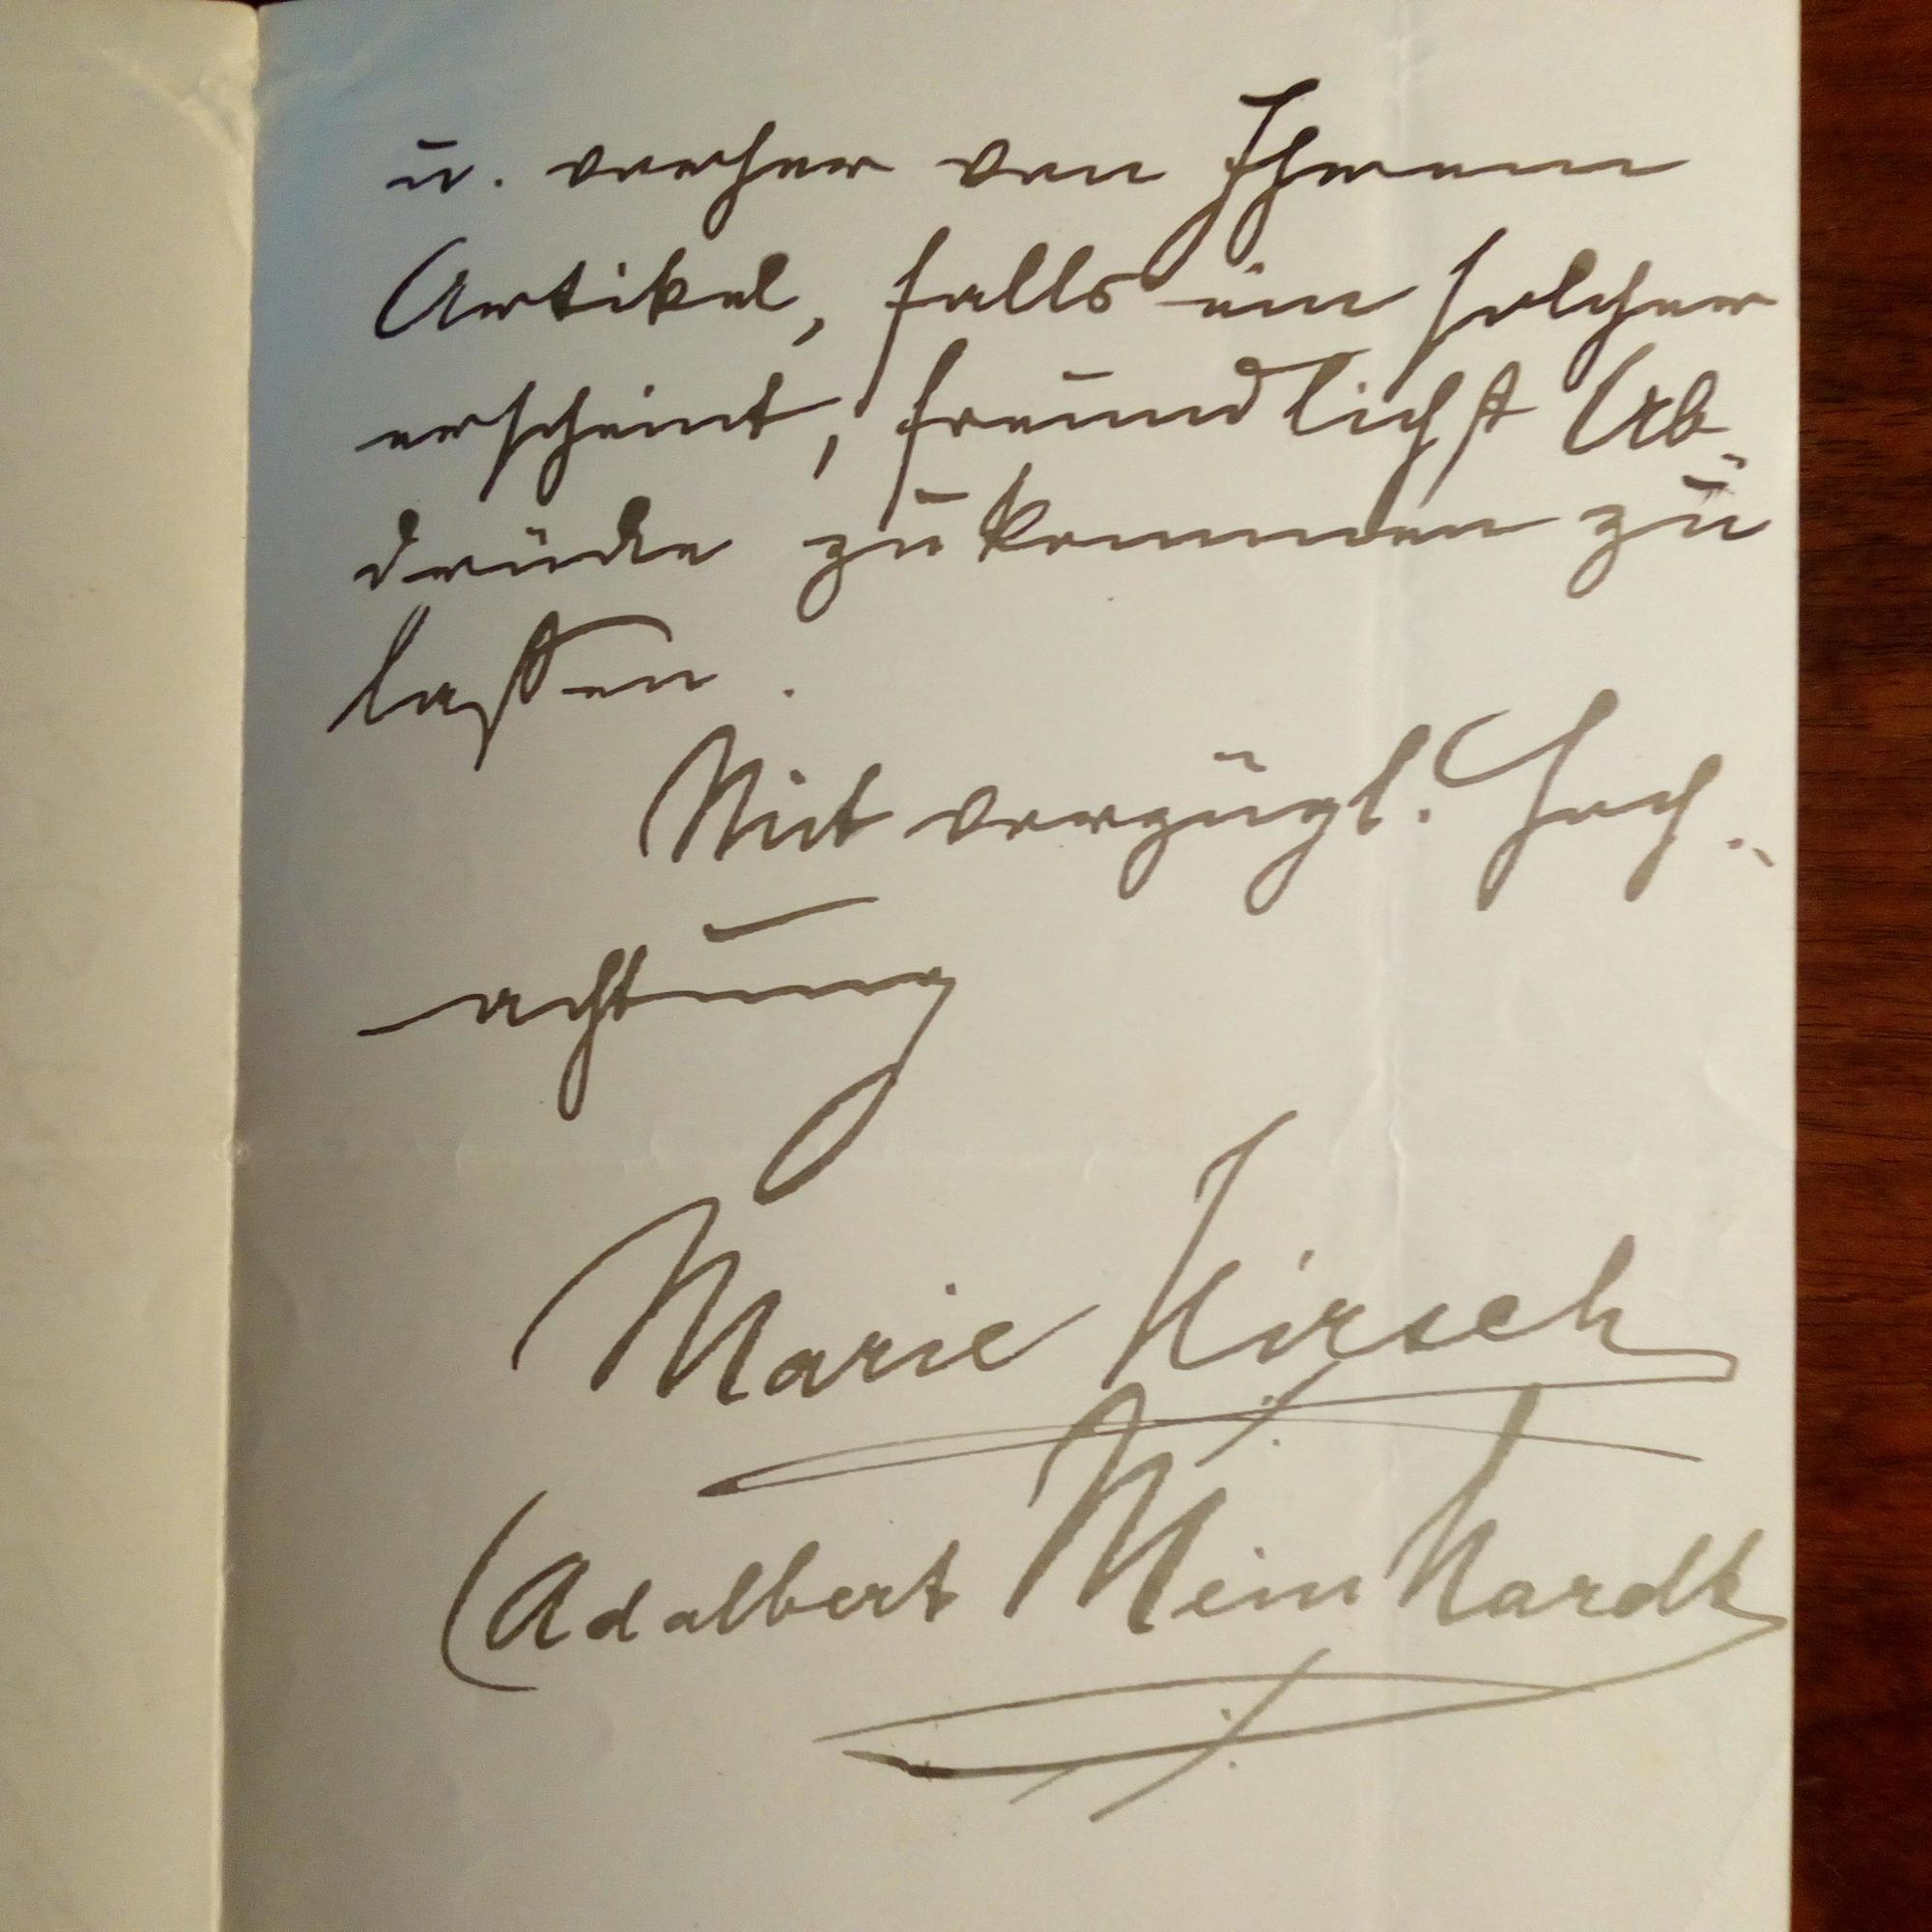 u. vorher von Ihrem
Artikel, falls ein solcher
erscheint, freundlichst Ab-
drücke zukommen zu
lassen.
Mit vorzügl. Hoch-
achtung
Marie Hirsch
(Adalbert Meinhardt